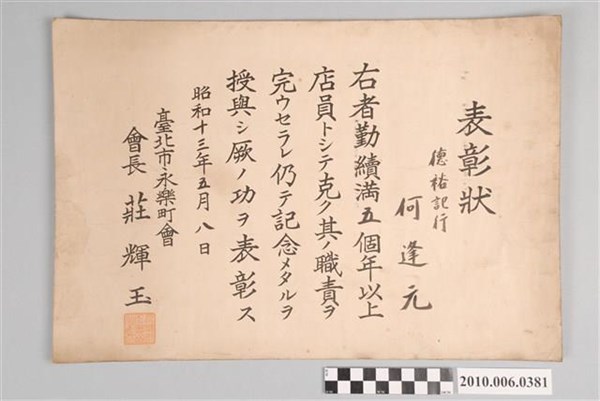 表彰狀
德祐記行
何逢元
右者勤續滿五個年以上
店員トシテ克ク其ノ職責ヲ
完ウセラレ仍テ記念メタルヲ
授與シ厥ノ功ヲ表彰ス
昭和十三年五月八日
臺北市永樂町會
會長 莊輝玉
2010.006.0381